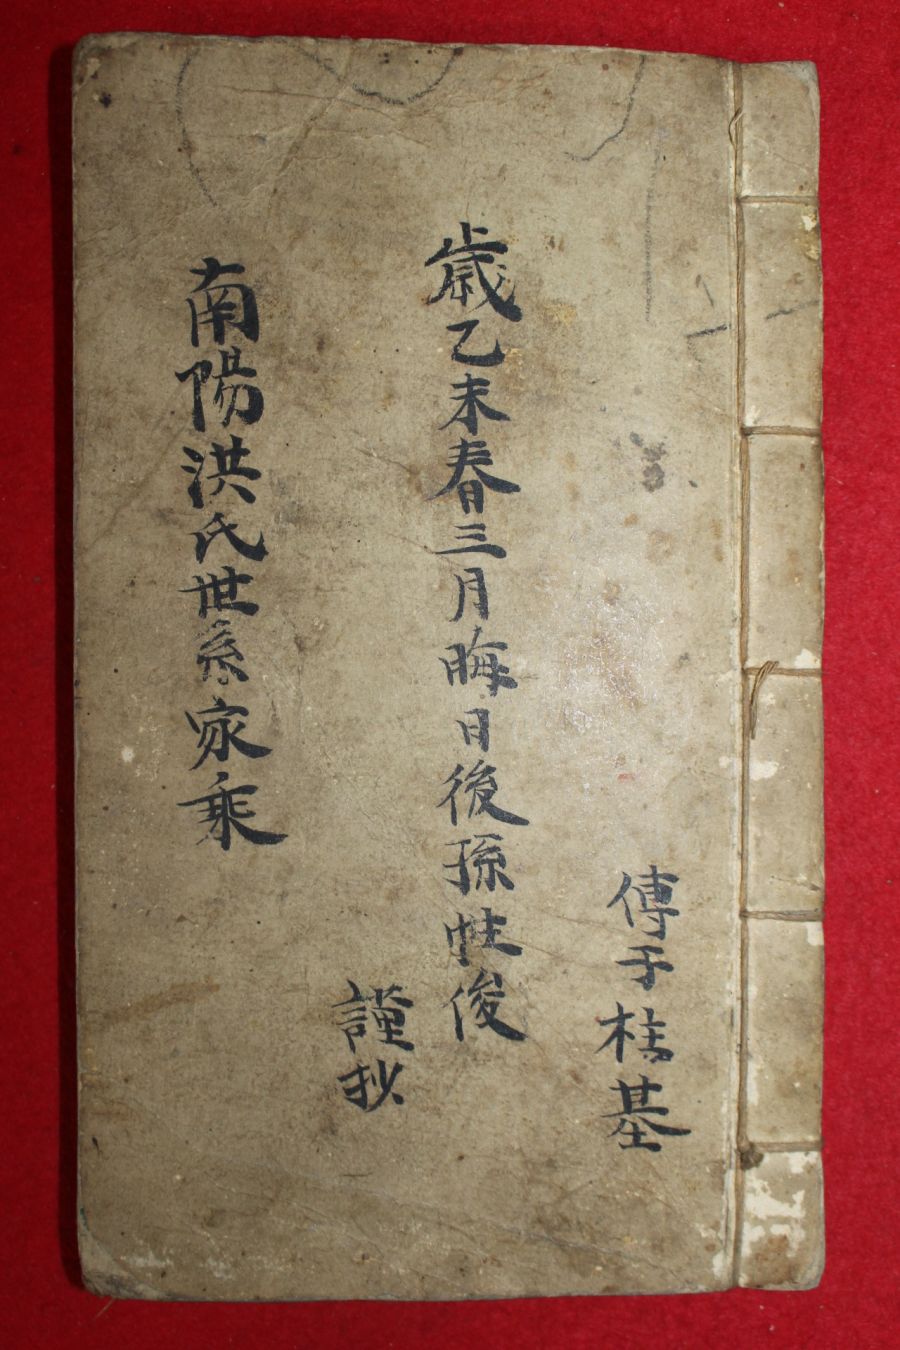 傳于柱基
歳乙未春三月晦日後孫性俊
謹抄
南陽洪氏世系家乘